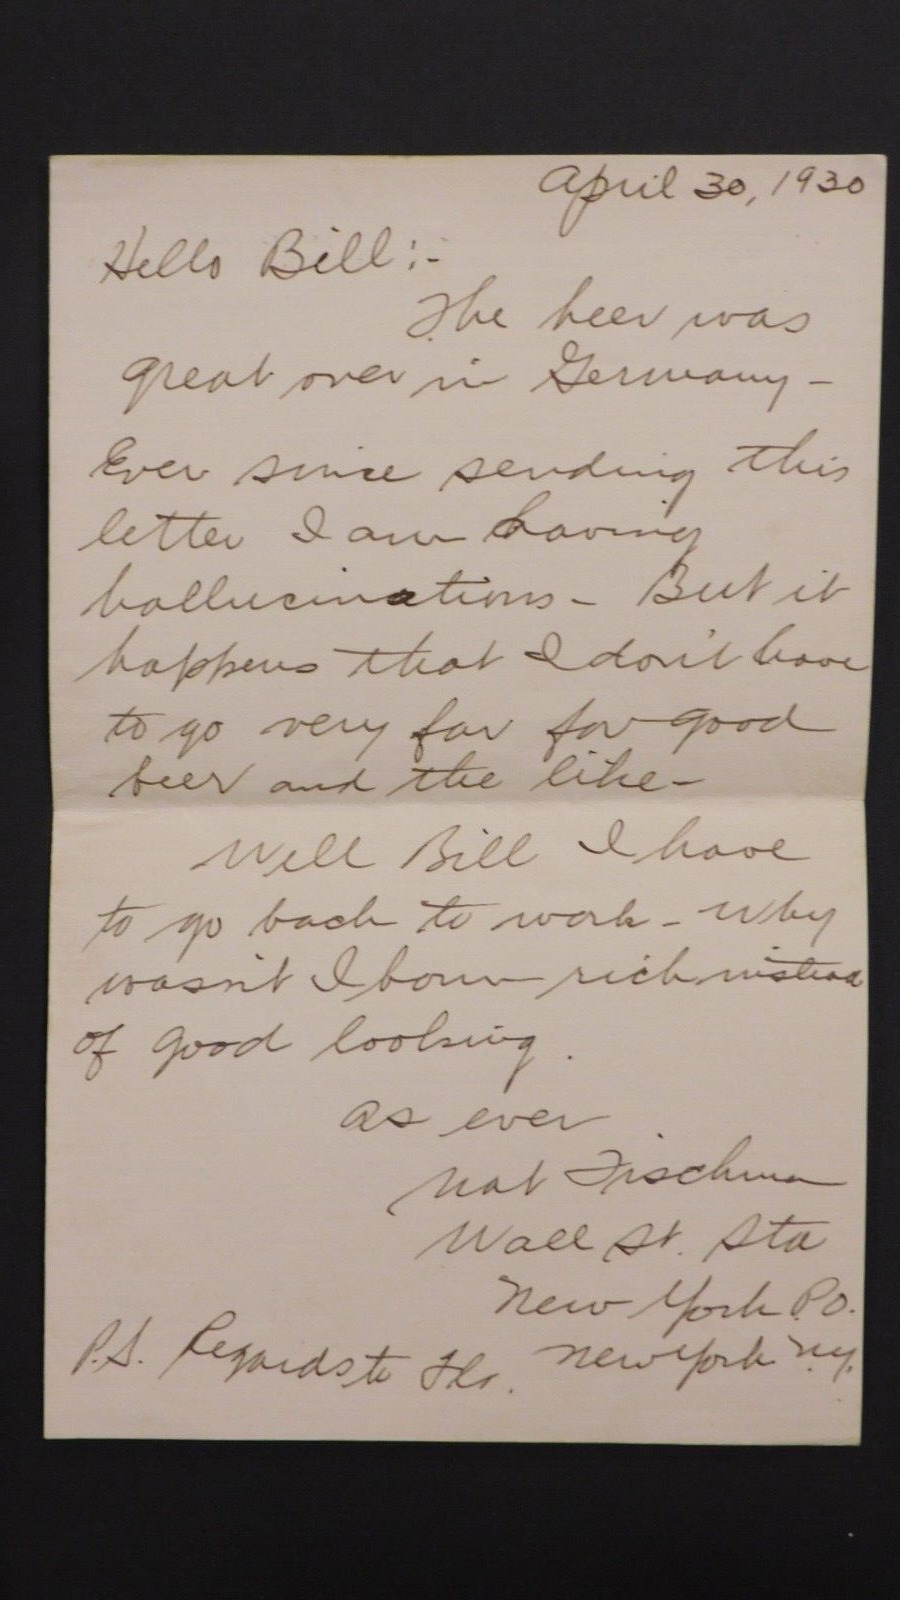 April 30, 1930
Hello Bill:-
The beer was
great over in Germany -
Ever since sending this
letter I am having
hallucinations - But it
happens that I don't have
to go very far for good
beer and the like -
Well Bill I have
to go back to work - Why
wasn't I born rich instead
of good looking.
As ever
Nat Fischman
Wall St. Sta
New York P.O.
P.S. Regards to Flo. New York N.Y.